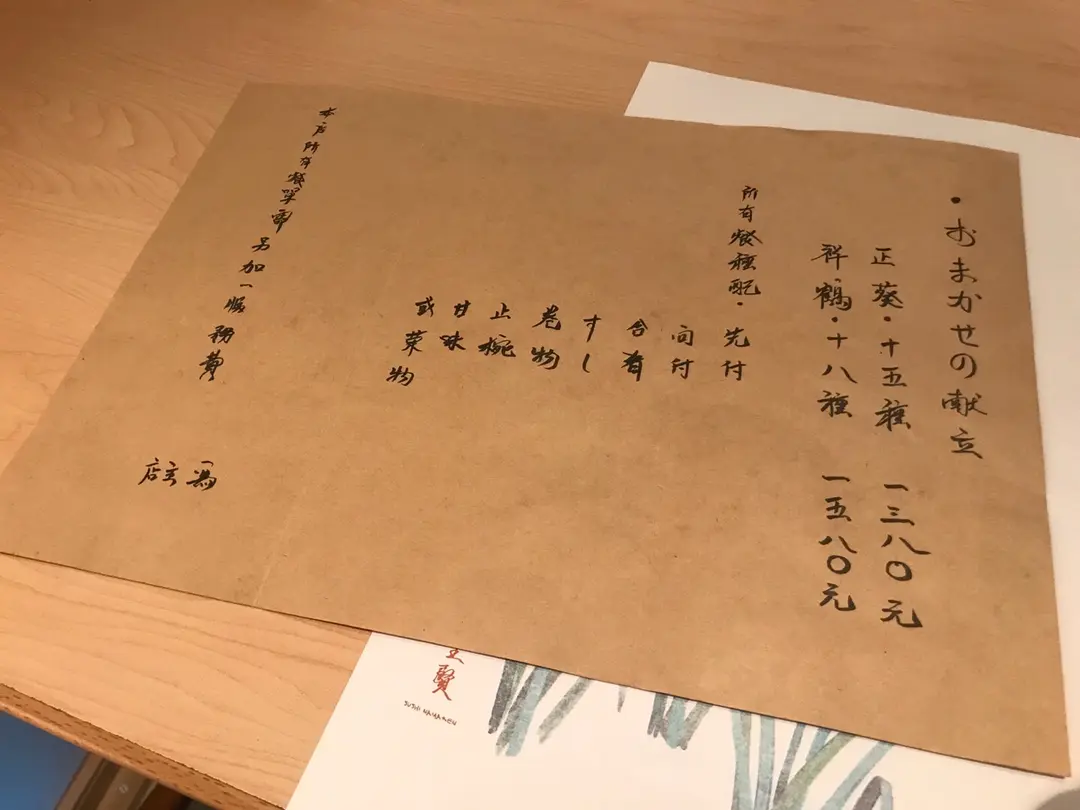 ・おまかせの献立
正葵・十五種 一三八〇元
祥鶴・十八種 一五八〇元
所有餐種配・先付
向付
合有
すし
卷物
止椀
甘味
或菓物
本店所有餐單需另加一服務費
店主 馮
賢